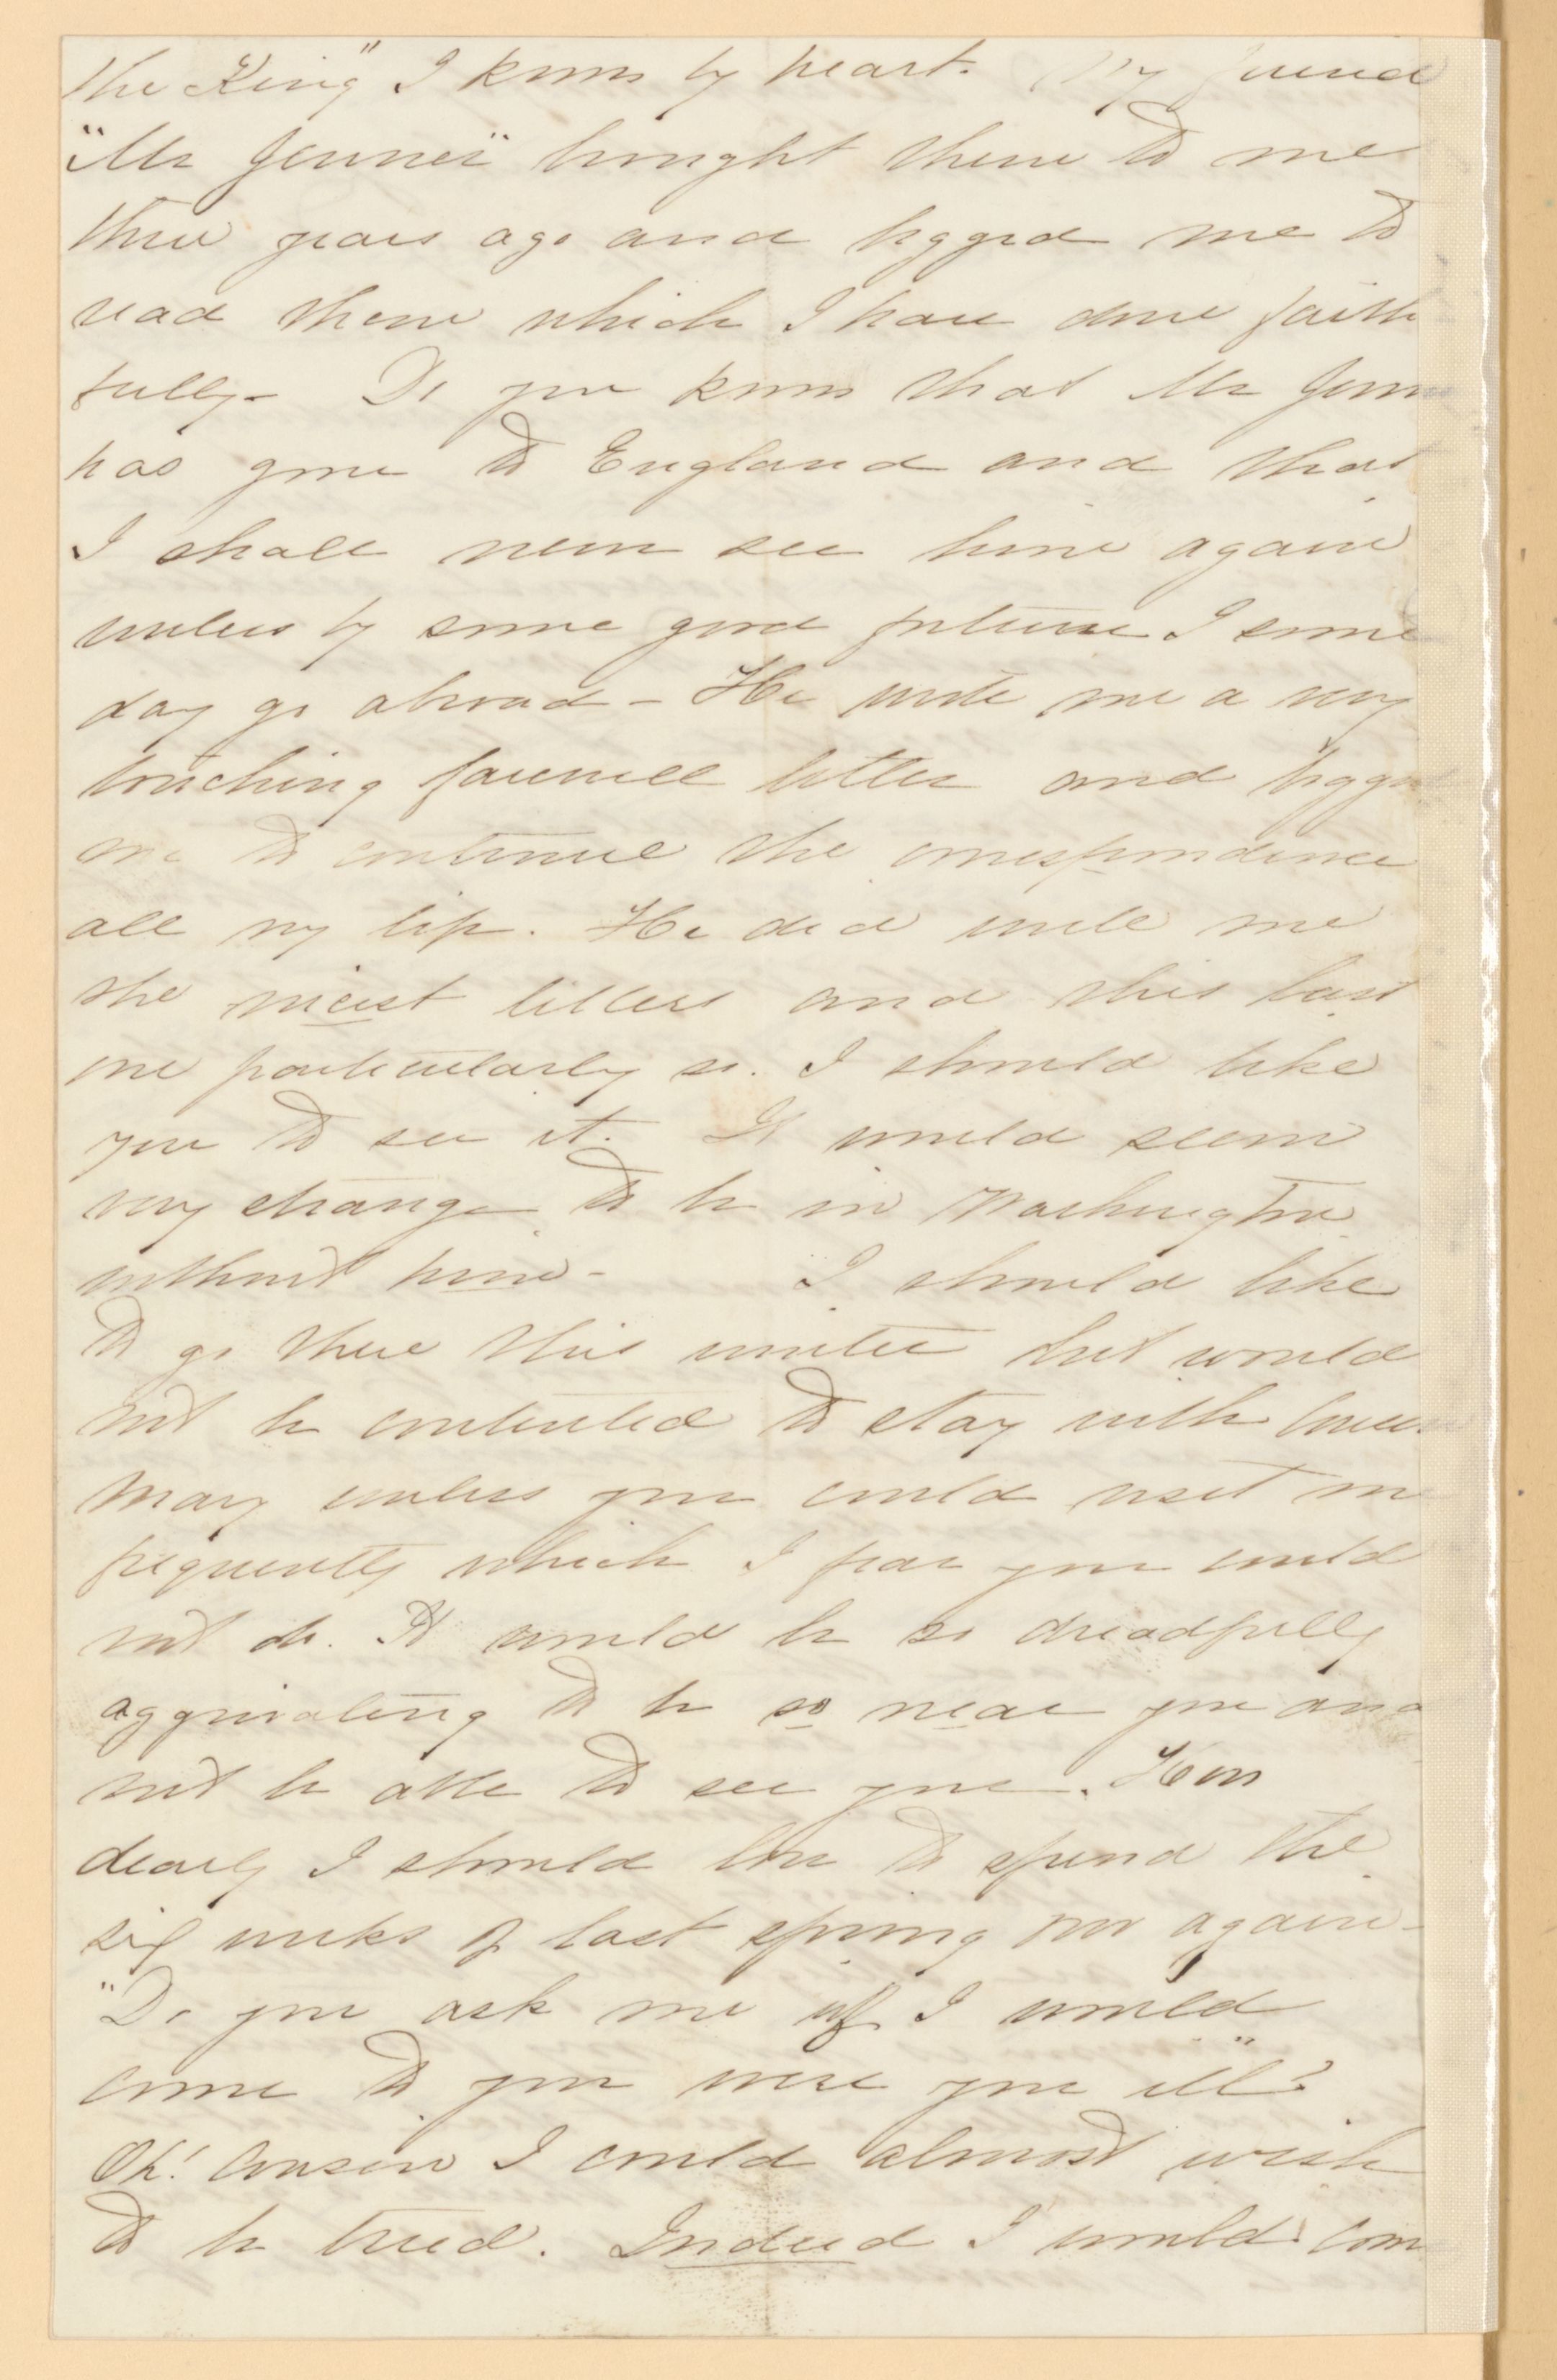 the King" I know by heart. My friend
"Mr Jenner" brought them to me
three years ago and begged me to
read them which I have done faith
fully- Do you know that Mr Jenn
has gone to England and that
I shall never see him again
unless by some good fortune I some
day go abroad - He wrote me a very
touching farewell letter and begged
me to continue the correspondence
all my life. He did write me
the nicest letters and this last
one particularly so. I should like
you to see it. It would seem
very strange to be in Washington
without him- I should like
to go there this winter but would
not be contented to stay with Cousin
Mary unless you could visit me
frequently which I fear you could
not do. It would be so dreadfully
aggrivating to be so near you and
not be able to see you. How
dearly I should love to spend the
six weeks of last spring over again-
"Do you ask me if I would
come to you were you ill"?
Oh! Cousin I could almost wish
to be tried. Indeed I would com